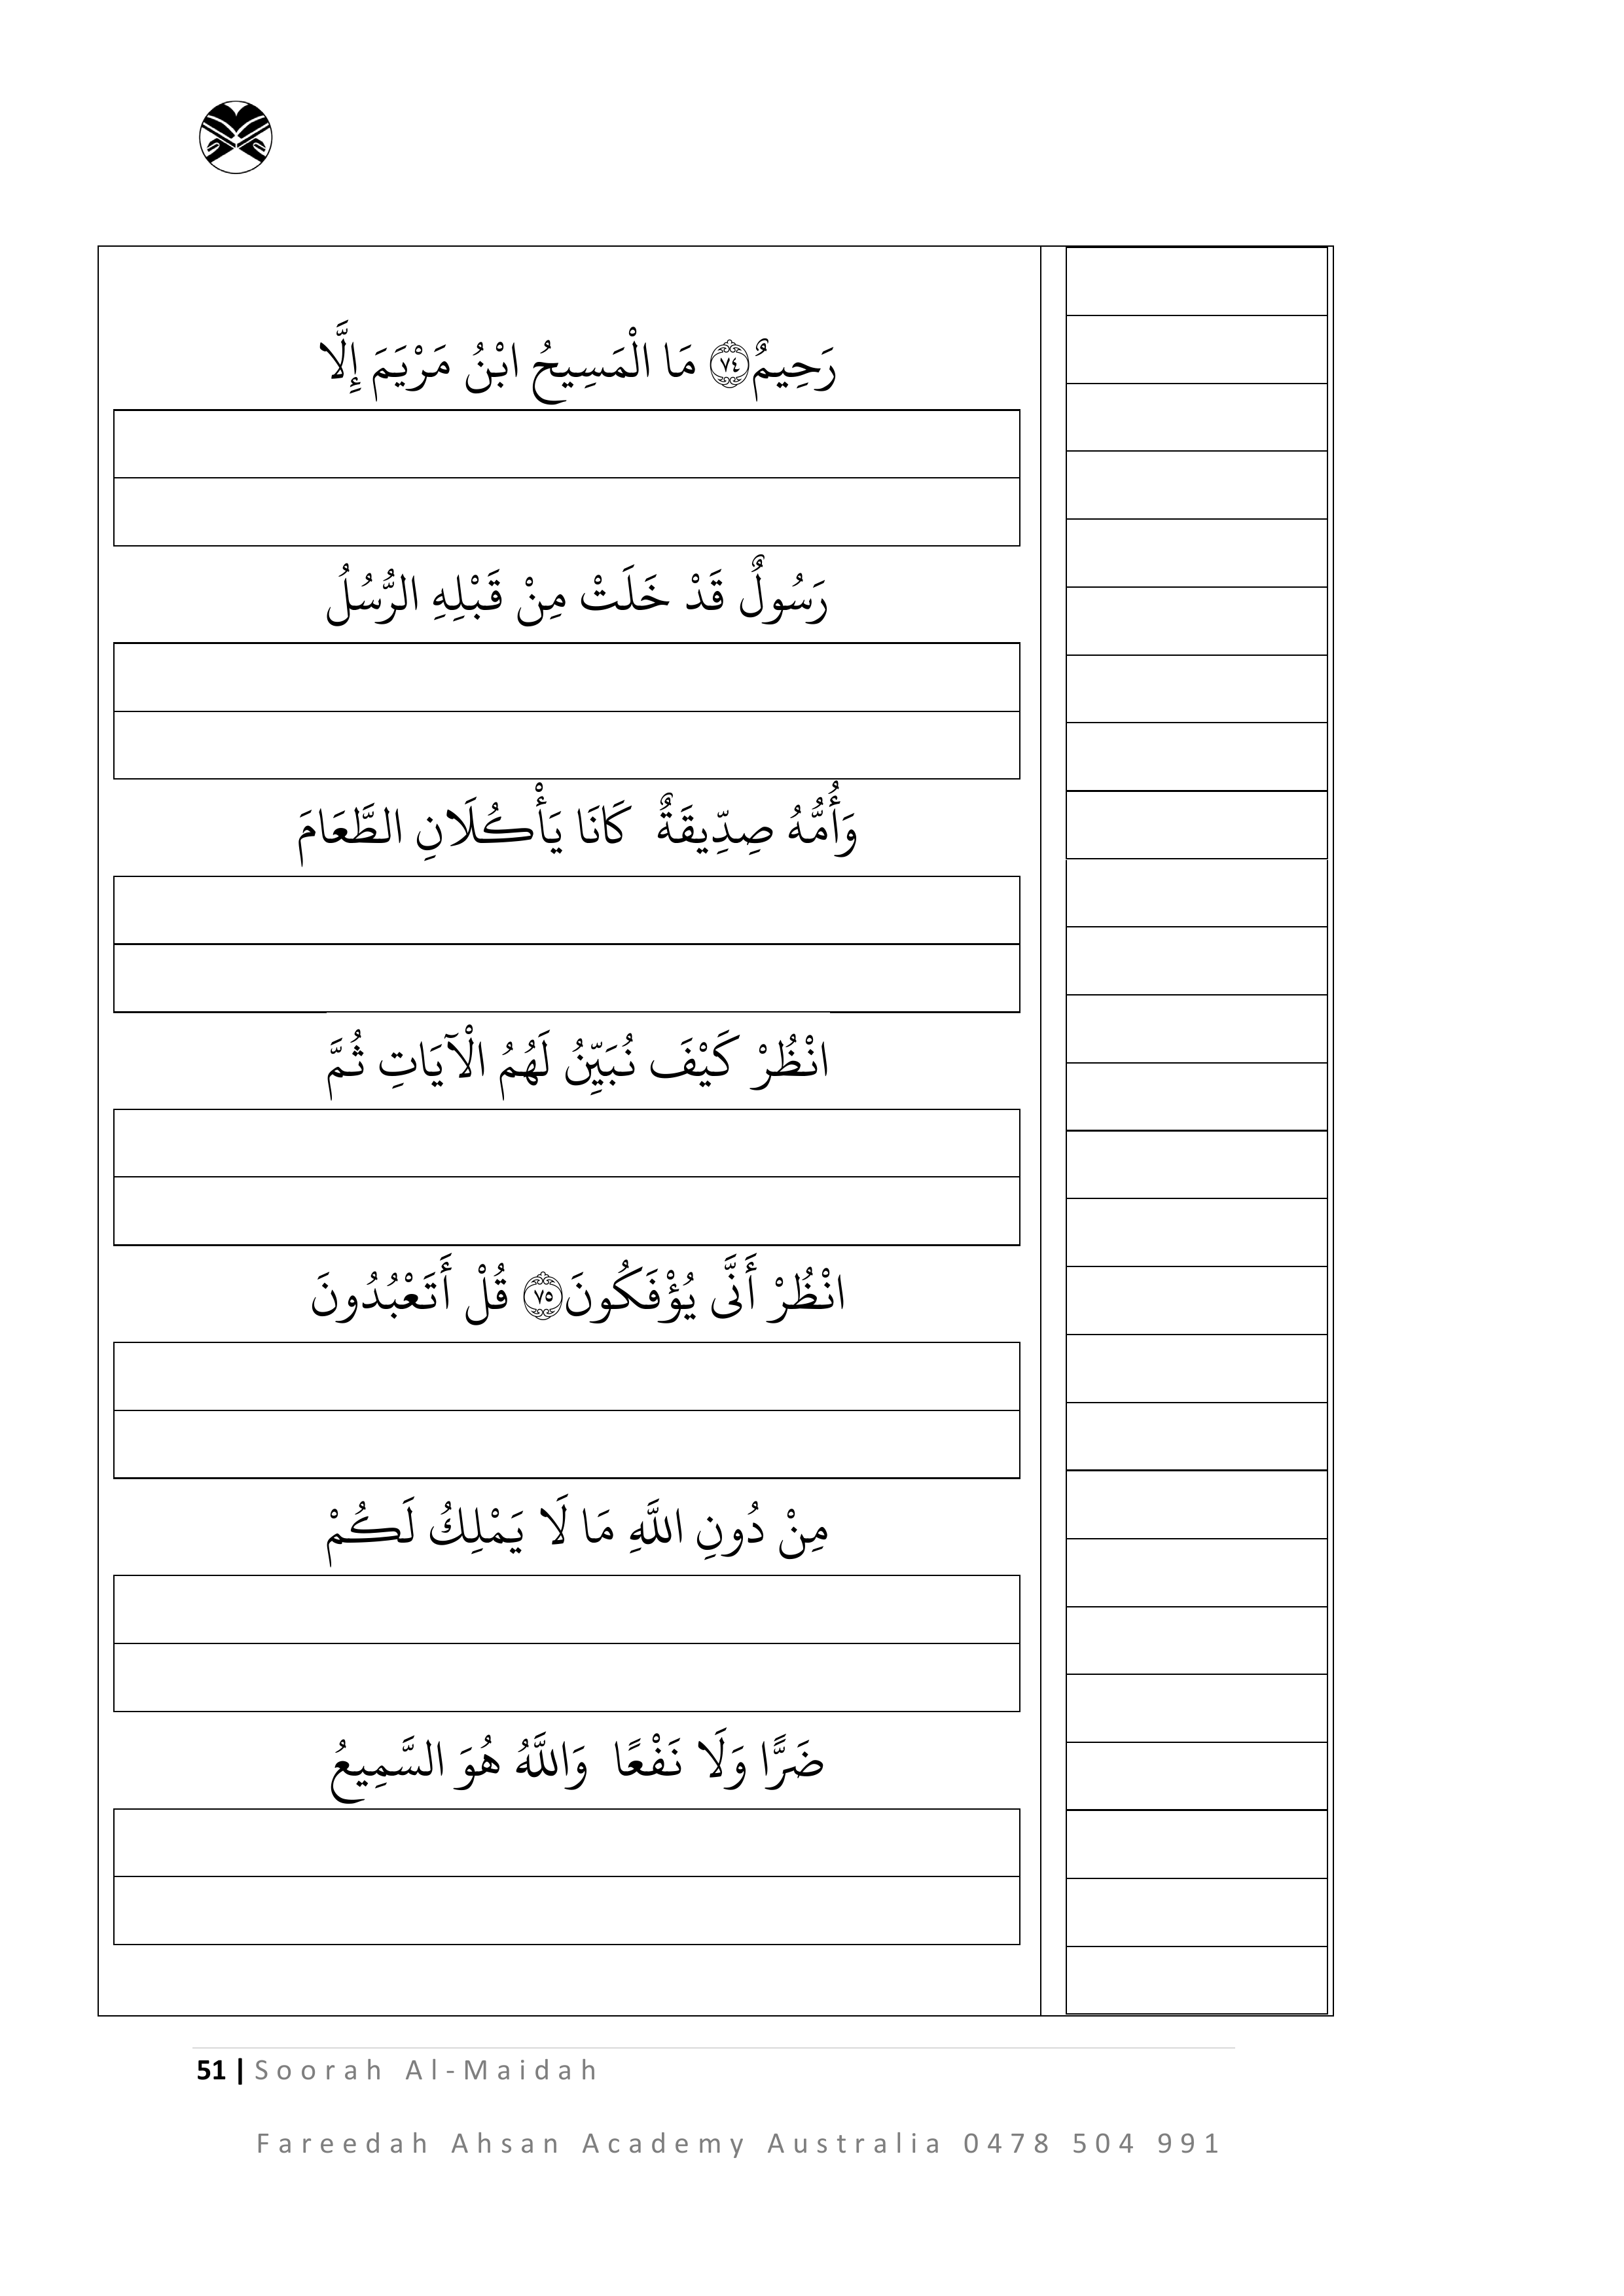 رَحِيمٌ﴿٧٤﴾ مَا الْمَسِيحُ ابْنُ مَرْيَمَ إِلَّا
رَسُولٌ قَدْ خَلَتْ مِنْ قَبْلِهِ الرُّسُلُ
وَأُمُّهُ صِدِّيقَةٌ كَانَا يَأْكُلَانِ الطَّعَامَ
انْظُرْ كَيْفَ نُبَيِّنُ لَهُمُ الْآيَاتِ ثُمَّ
انْظُرْ أَنَّى يُؤْفَكُونَ﴿٧٥﴾ قُلْ أَتَعْبُدُونَ
مِنْ دُونِ اللَّهِ مَا لَا يَمْلِكُ لَكُمْ
ضَرًّا وَلَا نَفْعًا وَاللَّهُ هُوَ السَّمِيعُ
51 | Soorah Al-Maidah
Fareedah Ahsan Academy Australia 0478 504 991